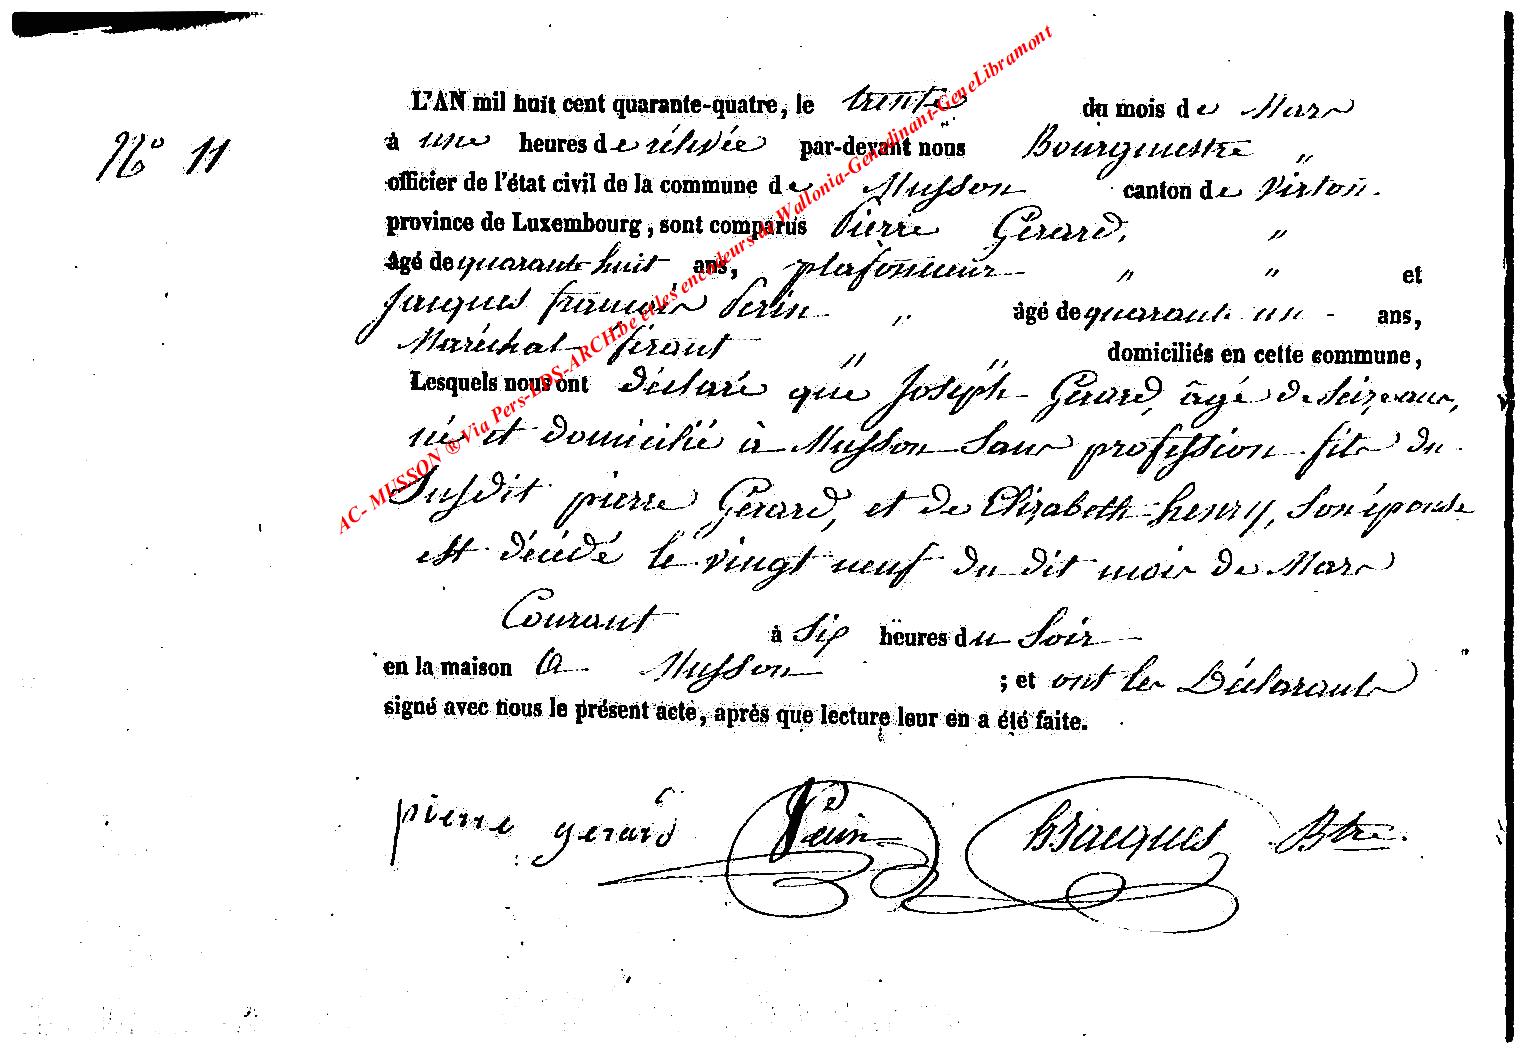 N° 11
L'AN mil huit cent quarante-quatre, le trente du mois de Mars
à une heures de rélevée par-devant nous Bourgmestre "
officier de l'état civil de la commune de Musson canton de Virton.
province de Luxembourg, sont comparus Pierre Gérard, "
âgé de quarante huit ans, plafonneur " " et
Jacques françois Perin " âgé de quarante un - ans,
Maréchal ferant " " domiciliés en cette commune,
Lesquels nous ont déclaré que Joseph Gérard, âgé de seize ans,
né et domicilié à Musson sans profession fils du
Susdit pierre Gérard, et de Elizabeth henry, son épouse
est décédé le vingt neuf du dit mois de Mars
Courant à Six heures du Soir
en la maison a Musson ; et ont les Déclarants
signé avec nous le présent acte, après que lecture leur en a été faite.
pierre gerard Perin Jacques Btre.
AC- MUSSON ® Via Pers-LDS-ARCH.be et les encodeurs de Wallonia-Genedinant-GeneLibramont